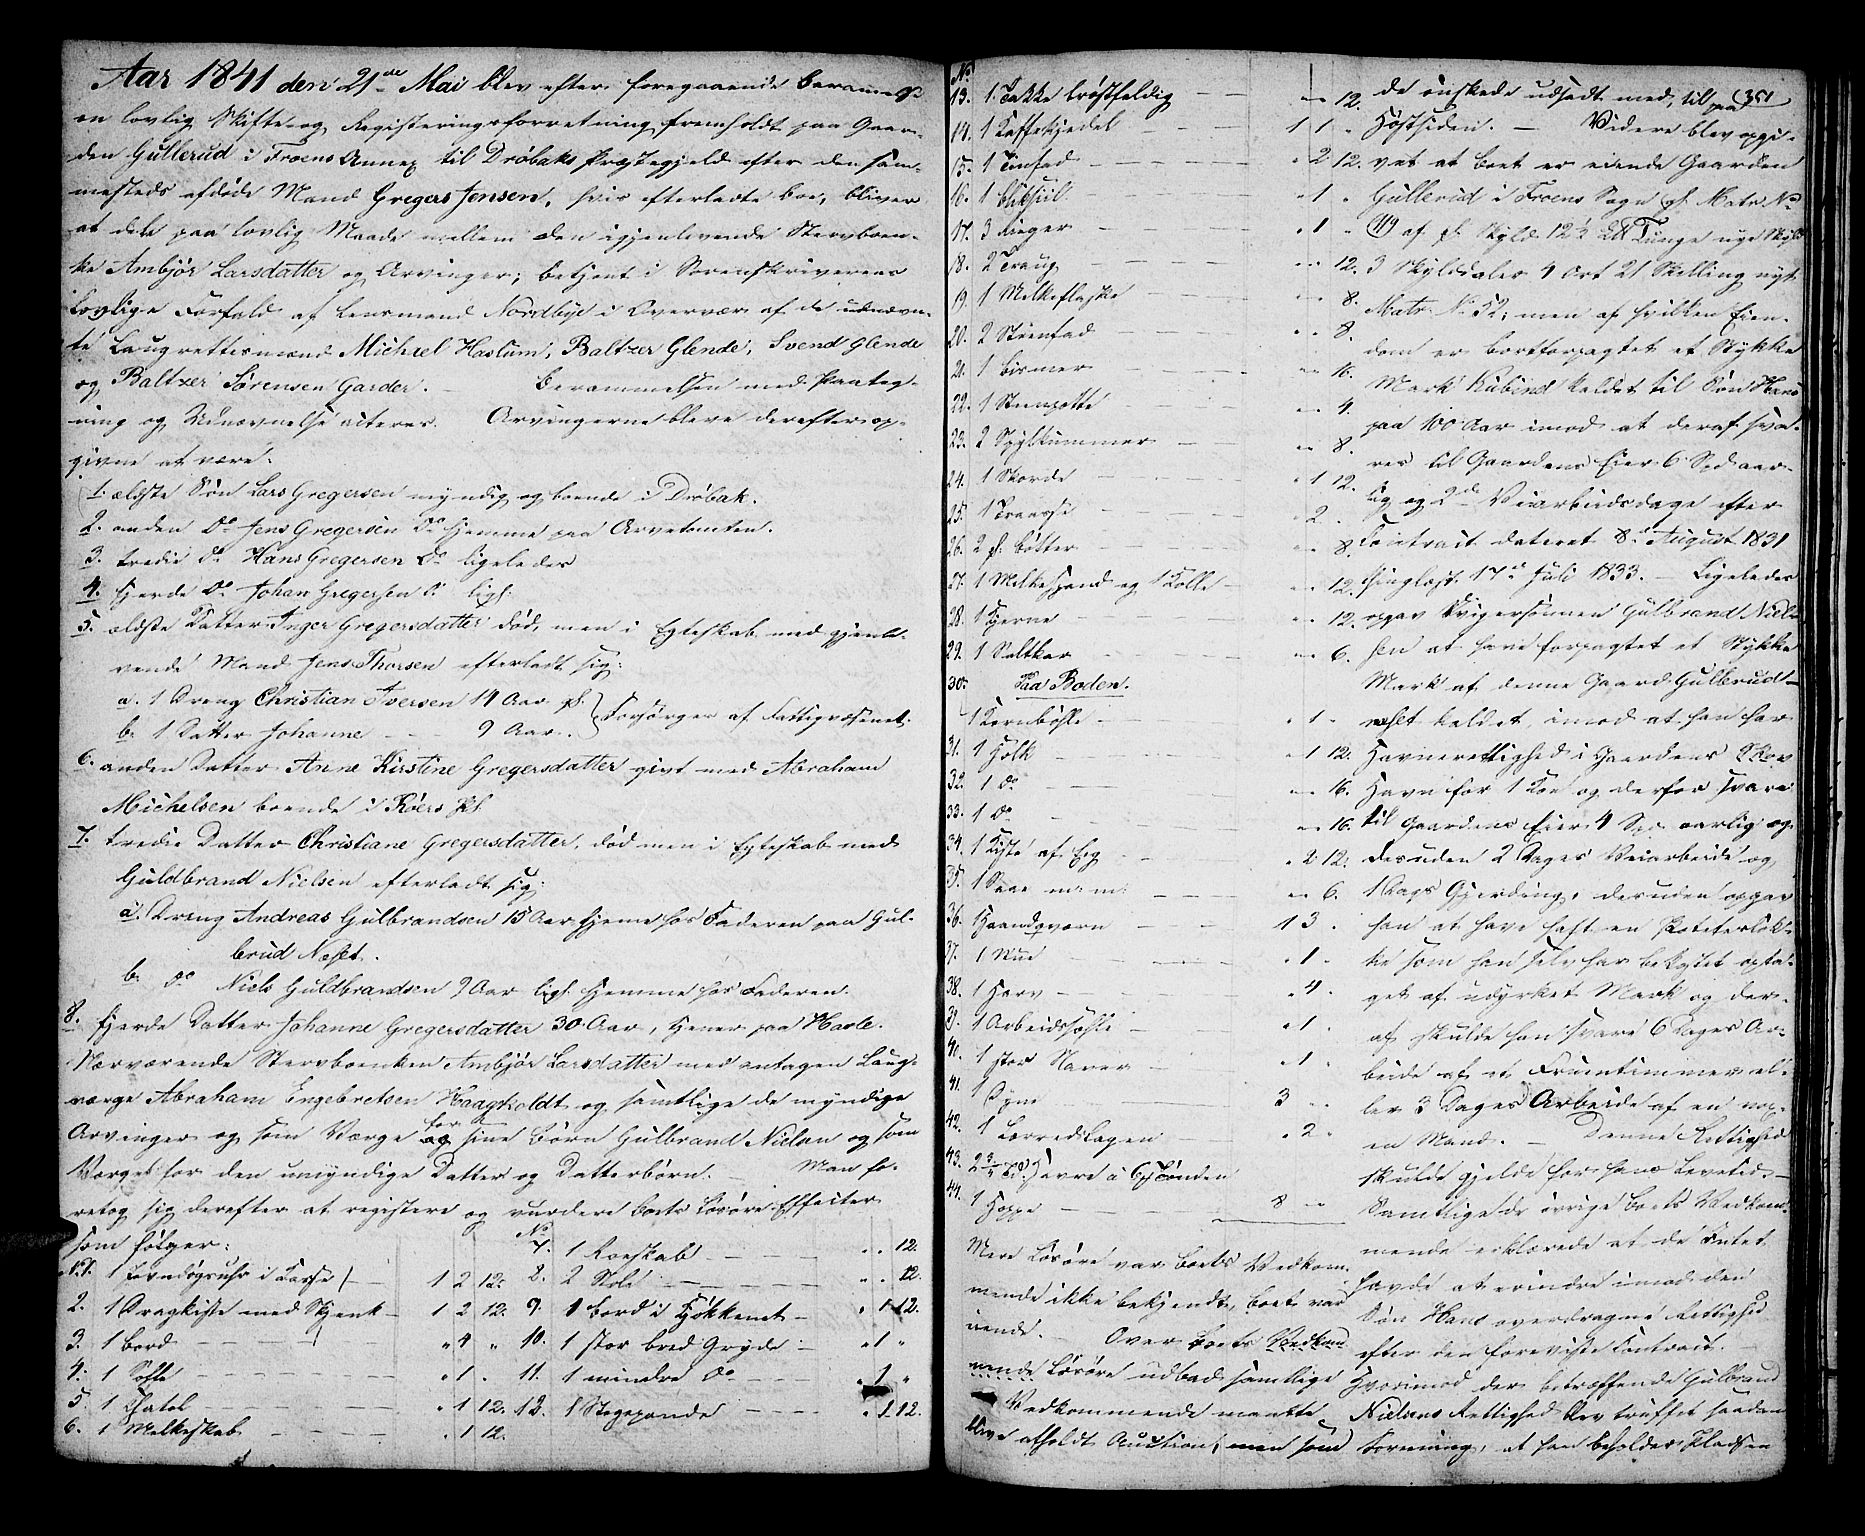 Aar 1841 den 21de Mai blev efter foregaaende Berammelse
en lovlig Skifte- og Registeringsforretning fremholdt paa Gaar-
den Gullerud i Froens Annex til Drøbaks Præstegjeld efter den sam-
mesteds afdøde Mand Gregers Jensen, hvis efterladte Boe, bliver
at dele paa lovlig Maade mellem den igjenlevende Stervboen-
ke Ambjør Larsdatter og Arvinger; betjent i Sorenskriverens
Lovlige Forfald af Lensmand Nordbye i Overvær af de udnævn-
te Laugrettesmænd Michael Haslum, Baltzer Glende, Svend Glende
og Baltzer Sørensen Garder. Berammelsen med Paateg-
ning og Udnævnelse citeres. Arvingerne bleve derefter op-
givne at være:
1. ældste Søn Lars Gregersen myndig og boende i Drøbak.
2. anden Do Jens Gregersen Do hjemme paa Arvetomten.
3. tredie do Hans Gregersen Do ligeledes
4. fjerde Do Johan Gregersen do ligs.
5. ældste Datter Inger Gregersdatter død, men i Egteskab med gjenle-
vende Mand Jens Thorsen efterladt sig:
a. 1 Dreng Christian Iversen 14 Aar gl. } Forsørges af Fattigvæsenet.
b. 1 Datter Johanne 9 Aar.
6. anden Datter Anne Kirstine Gregersdatter givt med Abraham
Michelsen boende i
7. tredie Datter Christiane Gregersdatter, død men i Egteskab med
Guldbrand Nielsen efterladt sig:
a. Dreng Andreas Gulbrandsen 15 Aar hjeme hos Faderen paa Gul-
brud Neset.
b. do Niels Guldbrandsen 9 Aar ligs. hjemme hos Faderen.
8. fjerde Datter Johanne Gregersdatter 30 Aar, tjener paa Havle.
Nærværende Stervboenken Ambjør Larsdatter med antagen Laug-
værge Abraham Engebretsen Haagkoldt og samtlige de myndige
Arvinger og som Værge for sine Børn Gulbrand Nielsen og som
Værge for den umyndige Datter og Datterbørn. Man fo-
retog sig derefter at registere og vurdere Boets Løsøre-Effecter
som følger:
N. 1. 1 Tovndøgnsuhr i Kasse 1 2 12.
2. 1 Dragkiste med Skjenk 1 2 12.
3. 1 Bord " 4 "
4. 1 " 1 "
5. 1 Chatol " 1 12.
6. 1 Melkeskab " 1 12.
No
7. 1 Roeskab " " 12.
8. 2 Stole " " 12.
9. 1 Bord i Kjøkkenet " 1 12.
10. 1 stor bred Gryde " 1 "
11. 1 mindre Do " 1 "
12. 1 Stegepande " 1 12.
No
13. 1 Takke brøstfeldig " " 12.
14. 1 Kaffekjedel 1 1 "
15. 1 Tinfad " 2 12.
16. 1 " 1 "
17. 3 Ringer " 1 "
18. 2 Traug " " 12.
19. 1 Melkeflaske " " 8.
20. 2 Steenfad " " 8.
21. 1 Bismer " " 16.
22. 1 Steenpotte " " 4.
23. 2 Spølkummer " " 8.
24. 1 " 1 12.
25. 1 " 2 "
26. 2 s. Bøtter " " 8.
27. 1 Melkespand og 1 Kolle " " 12.
28. 1 Kjerne " " 12.
29. 1 Saltkar " " 6.
30. Paa Boden.
1 Kornbøhle " 1 "
31. 1 Holk " 1 12.
32. 1 do " " 16.
33. 1 Do " " 16.
34. 1 Kiste af Eeg " 2 12.
35. 1 Saae m. m. " " 6.
36. Haandqværn 1 3 "
37. 1 " 1 "
38. 1 Harv " 4 "
39. 1 Arbeidssæhle " 1 "
40. 1 stor Naver " 1 "
41. 1 Dyne 3 " "
42. 1 Lærredslagen " 2 "
43. 2 3/4 Td. Havre a 6 Tønden
44. 1 Hoppe 8 " "
Mere Løsøre var Boets Vedkom-
mende ikke bekjendt, Boet var
eiende. Over Boets Vedkom-
mende Løsøre udbad samtlige
Vedkommende maatte
blive afholdt Auction, men som
351
de ønskede udsadt med, til paa
Høstsiden. Videre blev opgi-
vet at Boet er eiende Gaarden
Gullerud i Froens Sogn gl. Matr. No
49 af gl. Skyld 12½ Tunge nye Skyld
3 Skylddaler 4 Ort 21 Skelling nyt
Matr. No 52; men af hvilken Eien-
dom er bortforpagtet et Stykke
Mark Kubind kaldet til Søn Hans
paa 100 Aar imod at deraf sva-
res til Gaardens Eier 6 Spd aar-
lig og 2de Veiarbeidsdage efter
Contract dateret 8de August 1831
thinglæst 17de Juli 1833. Ligeledes
opgav Svigersønnen Gulbrand Niel-
sen at have forpagtet et Stykke
Mark af denne Gaard Gulbrud-
neset kaldet, imod at han har
Havnerettighed i Gaardens Skov
Havn for 1 Koe og derfor svare
til Gaardens Eier 4 Spd aarlig og
desuden 2 Dages Veiarbeide og
1 Dags Gjerding, desuden opgav
han at have havt en Potetesløk-
ke som han selv har bekostet opta-
get af udyrket Mark og der-
af skulde han svare 6 Dages Ar-
beide af et Fruentimmer el-
ler 3 Dages Arbeide af en vox-
en Mand. Denne Rettighed
skulde gjelde for hans Levetid.
Samtlige de øvrige Boets Vedkom-
mende erklærede at de Intet
havde at erindre imod den
Søn Hans overdragne Rettighed
efter den foreviste Contract.
Hvorimod der betræffende Gulbrand
Nielsens Rettighed blev truffet saadan
Forening, at han beholder Pladsen